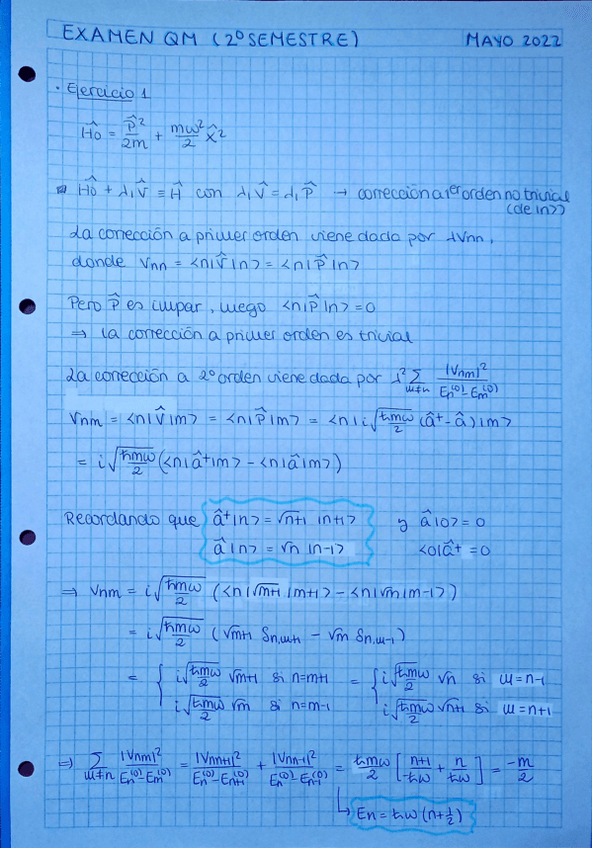 EXAMEN QM (2º SEMESTRE) MAYO 2022
· Ejercicio 1
Ĥ₀ = P̂²/2m + mω²/2 X̂²
Ĥ₀ + λ₁V̂ ≡ Ĥ con λ₁V̂ = λ₁P̂ → corrección a 1er orden no trivial
(de |n>)
La corrección a primer orden viene dada por λVnn,
donde Vnn = <n|V̂|n> = <n|P̂|n>
Pero P̂ es impar, luego <n|P̂|n> = 0
⇒ la corrección a primer orden es trivial
La corrección a 2º orden viene dada por λ² Σ_{m≠n} |Vnm|²/(En⁽⁰⁾-Em⁽⁰⁾)
Vnm = <n|V̂|m> = <n|P̂|m> = <n|i√(ħmω/2) (â⁺-â)|m>
= i√(ħmω/2) (<n|â⁺|m> - <n|â|m>)
Recordando que â⁺|n> = √n+1 |n+1> y â|0> = 0
â|n> = √n |n-1> <0|â⁺ = 0
⇒ Vnm = i√(ħmω/2) (<n|√m+1 |m+1> - <n|√m|m-1>)
= i√(ħmω/2) (√m+1 δn,m+1 - √m δn,m-1)
= { i√(ħmω/2) √m+1 si n=m+1 = { i√(ħmω/2) √n si m=n-1
i√(ħmω/2) √m si n=m-1 i√(ħmω/2) √n+1 si m=n+1
⇒ Σ_{m≠n} |Vnm|²/(En⁽⁰⁾-Em⁽⁰⁾) = |Vnn+1|²/(En⁽⁰⁾-En+1⁽⁰⁾) + |Vnn-1|²/(En⁽⁰⁾-En-1⁽⁰⁾) = ħmω/2 [ n+1/-ħω + n/ħω ] = -m/2
↳ En = ħω(n+1/2)